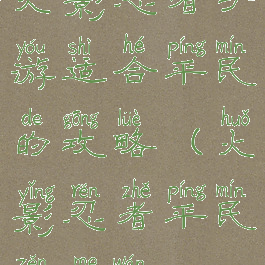 影 忍 者
yóu shì hé píng mín
游 适 合 平 民
de gōng lüè huǒ
的 攻 略 ( 火
yǐng rěn zhě píng mín
影 忍 者 平 民
zěn me wán